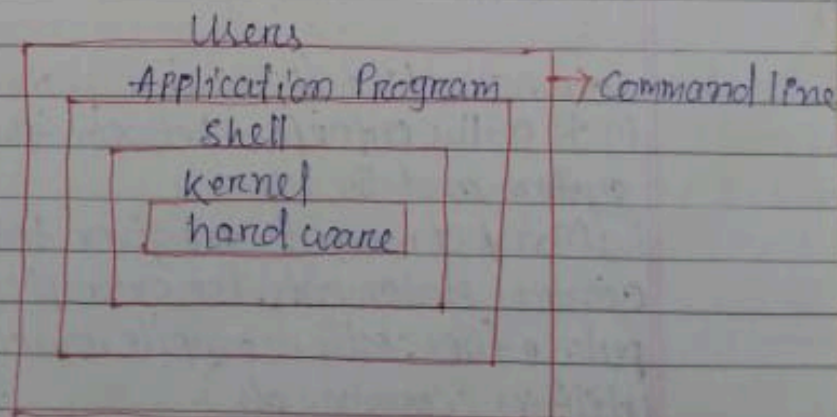 Users
Application Program → Command line
Shell
Kernel
hard ware